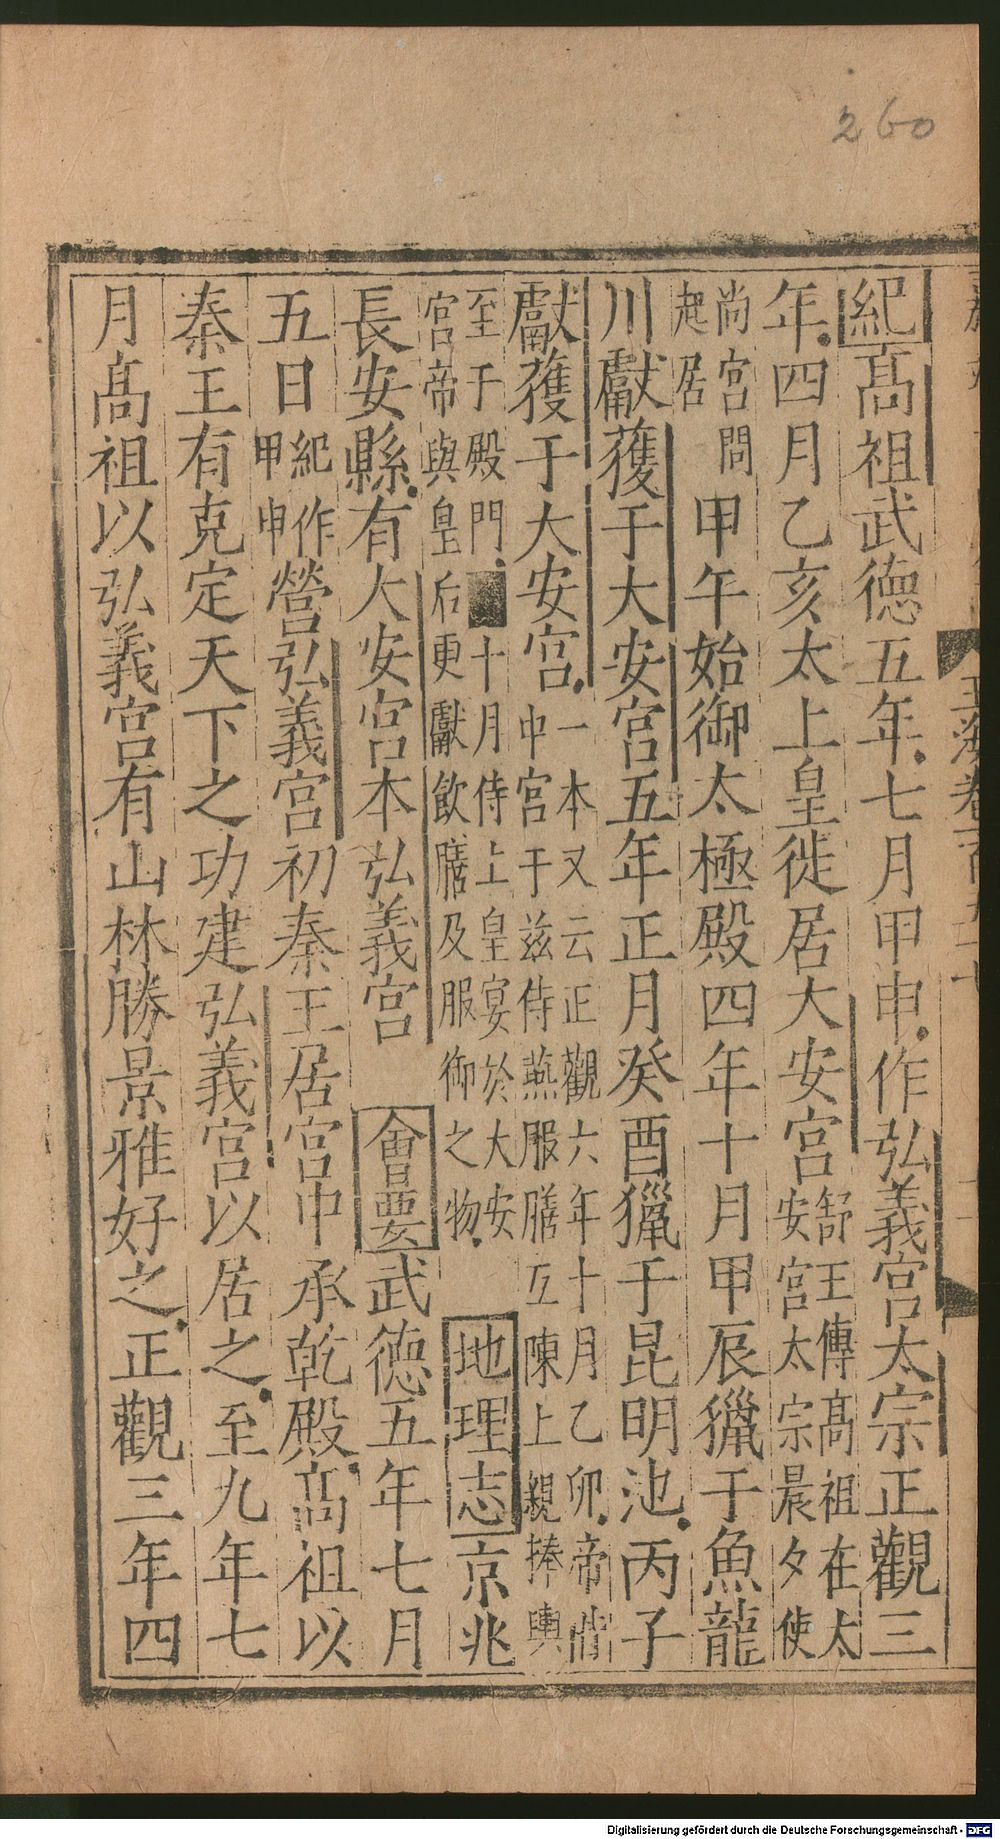 260
玉海卷
紀高祖武德五年七月甲申作弘義宮太宗正觀三
年四月乙亥太上皇徙居大安宮舒王傳高祖在太
安宮太宗晨夕使
尚宮問
起居甲午始御太極殿四年十月甲辰獵于魚龍
川獻獲于大安宮五年正月癸酉獵于昆明池丙子
獻獲于大安宮一本又云正觀六年十月乙卯帝偕
中宮于茲侍燕服膳互陳上親捧輿
至于殿門十月侍上皇宴於大安
宮帝與皇后更獻飲膳及服御之物地理志京兆
長安縣有大安宮本弘義宮會要武德五年七月
五日紀作
甲申營弘義宮初秦王居宮中承乾殿高祖以
秦王有克定天下之功建弘義宮以居之至九年七
月高祖以弘義宮有山林勝景雅好之正觀三年四
Digitalisierung gefördert durch die Deutsche Forschungsgemeinschaft - DFG